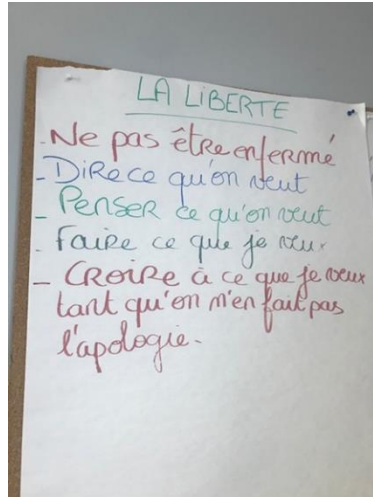 LA LIBERTE
- Ne pas être enfermé
- Dire ce qu'on veut
- Penser ce qu'on veut
- Faire ce que je veux
- CROIRE à ce que je veux
tant qu'on n'en fait pas
l'apologie.